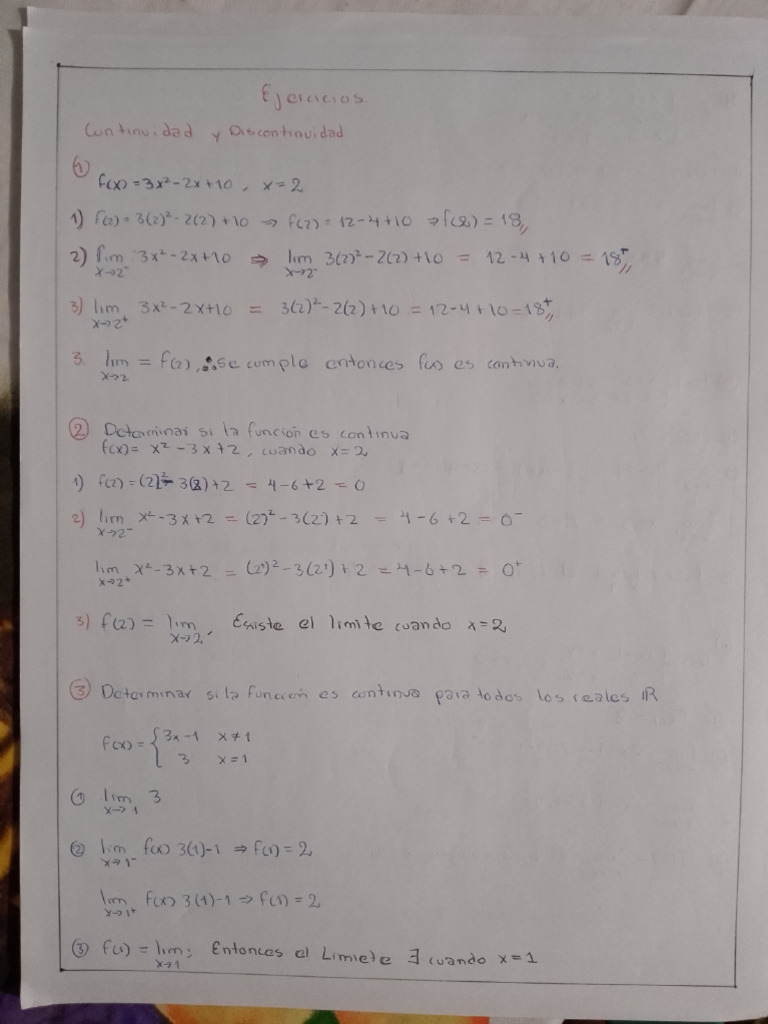 Ejercicios.
Continuidad y Discontinuidad
① f(x) = 3x² - 2x + 10, x = 2
1) f(2) = 3(2)² - 2(2) + 10 ⇒ f(2) = 12 - 4 + 10 ⇒ f(2) = 18,,
2) lim x→2⁻ 3x² - 2x + 10 ⇒ lim x→2⁻ 3(2)² - 2(2) + 10 = 12 - 4 + 10 = 18⁺,,
3) lim x→2⁺ 3x² - 2x + 10 = 3(2)² - 2(2) + 10 = 12 - 4 + 10 = 18⁺,,
3. lim x→2 = f(2), ∴ se cumple entonces f(x) es continua.
② Determinar si la función es continua
f(x) = x² - 3x + 2, cuando x = 2
1) f(2) = (2)² - 3(2) + 2 = 4 - 6 + 2 = 0
2) lim x→2⁻ x² - 3x + 2 = (2)² - 3(2) + 2 = 4 - 6 + 2 = 0⁻
lim x→2⁺ x² - 3x + 2 = (2⁺)² - 3(2⁺) + 2 = 4 - 6 + 2 = 0⁺
3) f(2) = lim x→2, Existe el limite cuando x = 2
③ Determinar si la función es continua para todos los reales ℝ
f(x) = { 3x - 1 x ≠ 1
3 x = 1
① lim x→1 3
② lim x→1⁻ f(x) 3(1) - 1 ⇒ f(1) = 2
lim x→1⁺ f(x) 3(1) - 1 ⇒ f(1) = 2
③ f(1) = lim x→1; Entonces el Limiete ∃ cuando x = 1